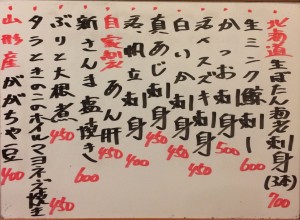 北海道生ぼたん海老刺身(3本)700
生ミンク鯨刺身600
かつお刺身500
活〆スズキ刺身450
白いか刺身450
真あじ刺身450
活帆立刺身400
自家製あん肝450
新さんま塩焼き600
ぶりと大根煮450
タラときのこのホイルマヨネーズ焼き450
山形産だだちゃ豆400